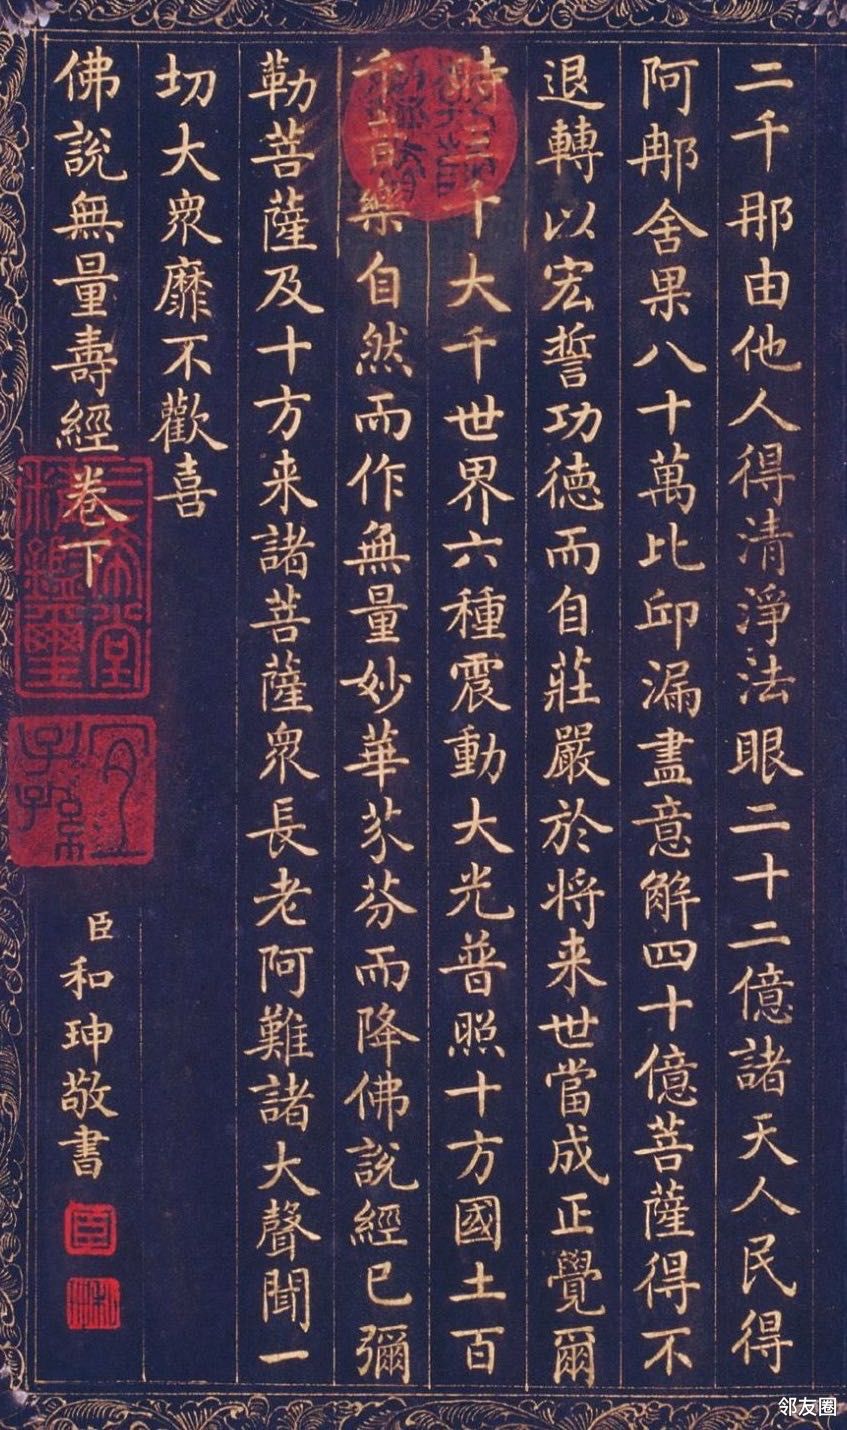 二千那由他人得清淨法眼二十二億諸天人民得
阿𨚗舍果八十萬比邱漏盡意解四十億菩薩得不
退轉以宏誓功德而自莊嚴於将来世當成正覺爾
時三千大千世界六種震動大光普照十方國土百
千音樂自然而作無量妙華芬芬而降佛說經已彌
勒菩薩及十方来諸菩薩衆長老阿難諸大聲聞一
切大衆靡不歡喜
佛說無量壽經卷下
三希堂精鑑璽
宜子孫
臣和珅敬書
臣
和珅
邻友圈